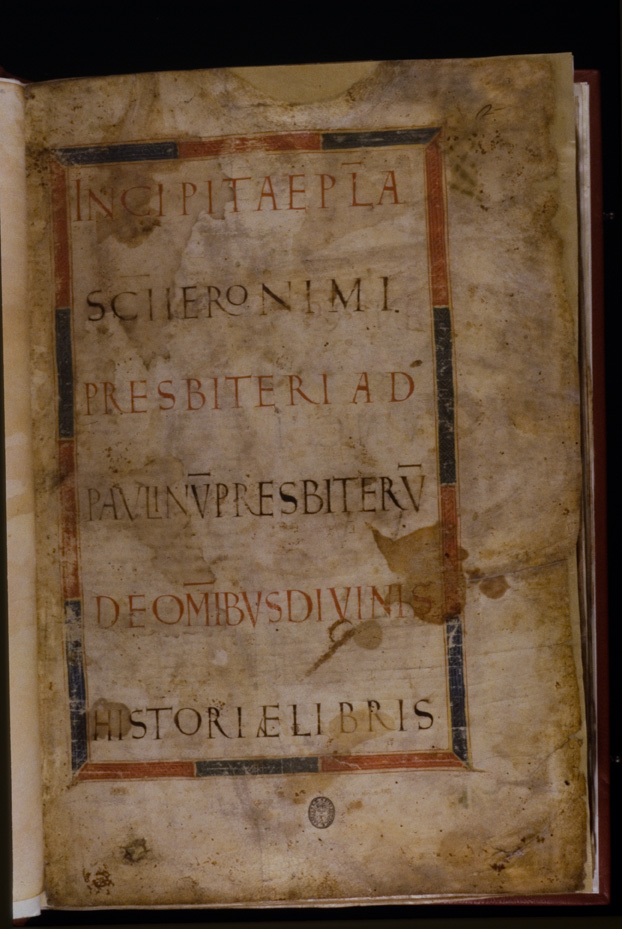 INCIPITAEPL̅A
SC̅IIERONIMI
PRESBITERI AD
PAVLINV̅PRESBITERV̅
DEOM̅IBVSDIVINIS
HISTORIÆLIBRIS